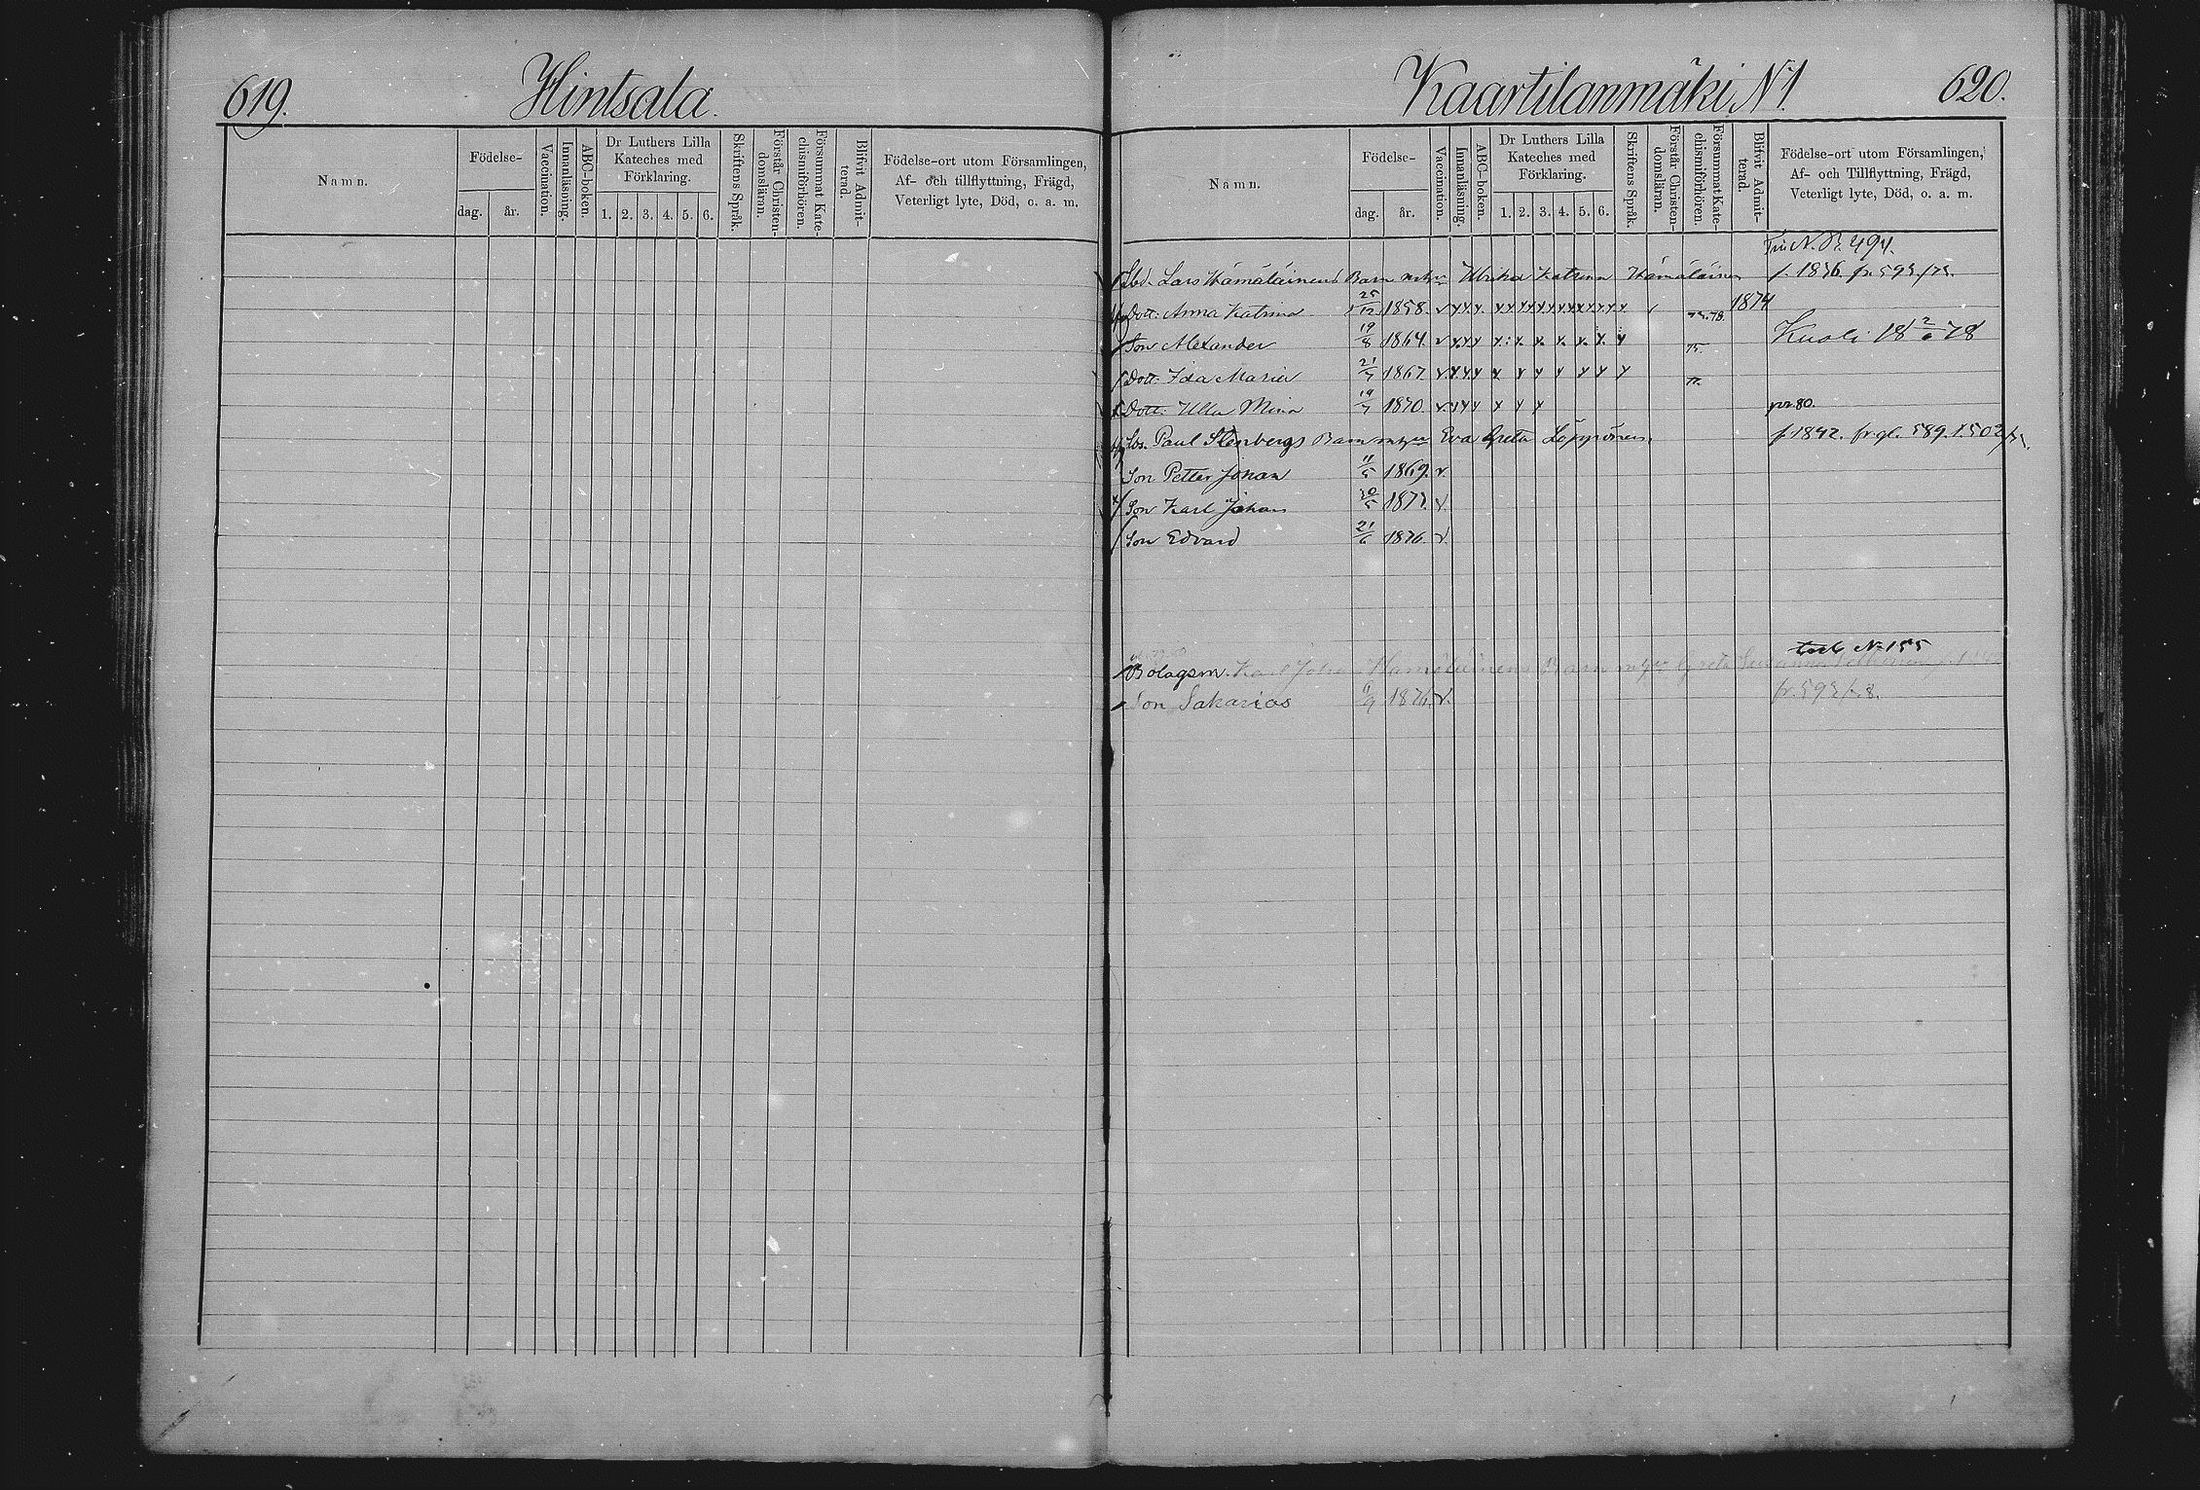 619.
Hintsala.
Namn.
Födelse-
dag. år.
Vaccination.
Innanläsning.
ABC-boken.
Dr Luthers Lilla Kateches med Förklaring.
1. 2. 3. 4. 5. 6.
Skriftens Språk.
Förstår Christendomsläran.
Försummat Katechismiförhören.
Blifvit Admitterad.
Födelse-ort utom Församlingen,
Af- och tillflyttning, Frägd,
Veterligt lyte, Död, o. a. m.
Kaartilanmäki N1.
620.
Namn.
Födelse-
dag. år.
Vaccination.
Innanläsning.
ABC-boken.
Dr Luthers Lilla Kateches med Förklaring.
1. 2. 3. 4. 5. 6.
Skriftens Språk.
Förstår Christendomsläran.
Försummat Katechismiförhören.
Blifvit Admitterad.
Födelse-ort utom Församlingen,
Af- och Tillflyttning, Frägd,
Veterligt lyte, Död, o. a. m.
494.
Lars Hämäläinens Barn Ulrika Katrina Hämäläinen
Dott. Anna Katrina 25/12 1858. 1874
Son Alexander 19/8 1864. Kuoli 18 2/6 78
Dott. Ida Maria 1867.
Dott. Ulla Mina 1870. 80.
Paul Stenbergs Barn Eva Greta Löppönen
Son Petter Johan 1869.
Son Karl Johan
Son Edvard 21/6 1876.
N 155
Bolagsm. Karl Johan Hämäläinens Barn Greta
Son Sakarias 1876.